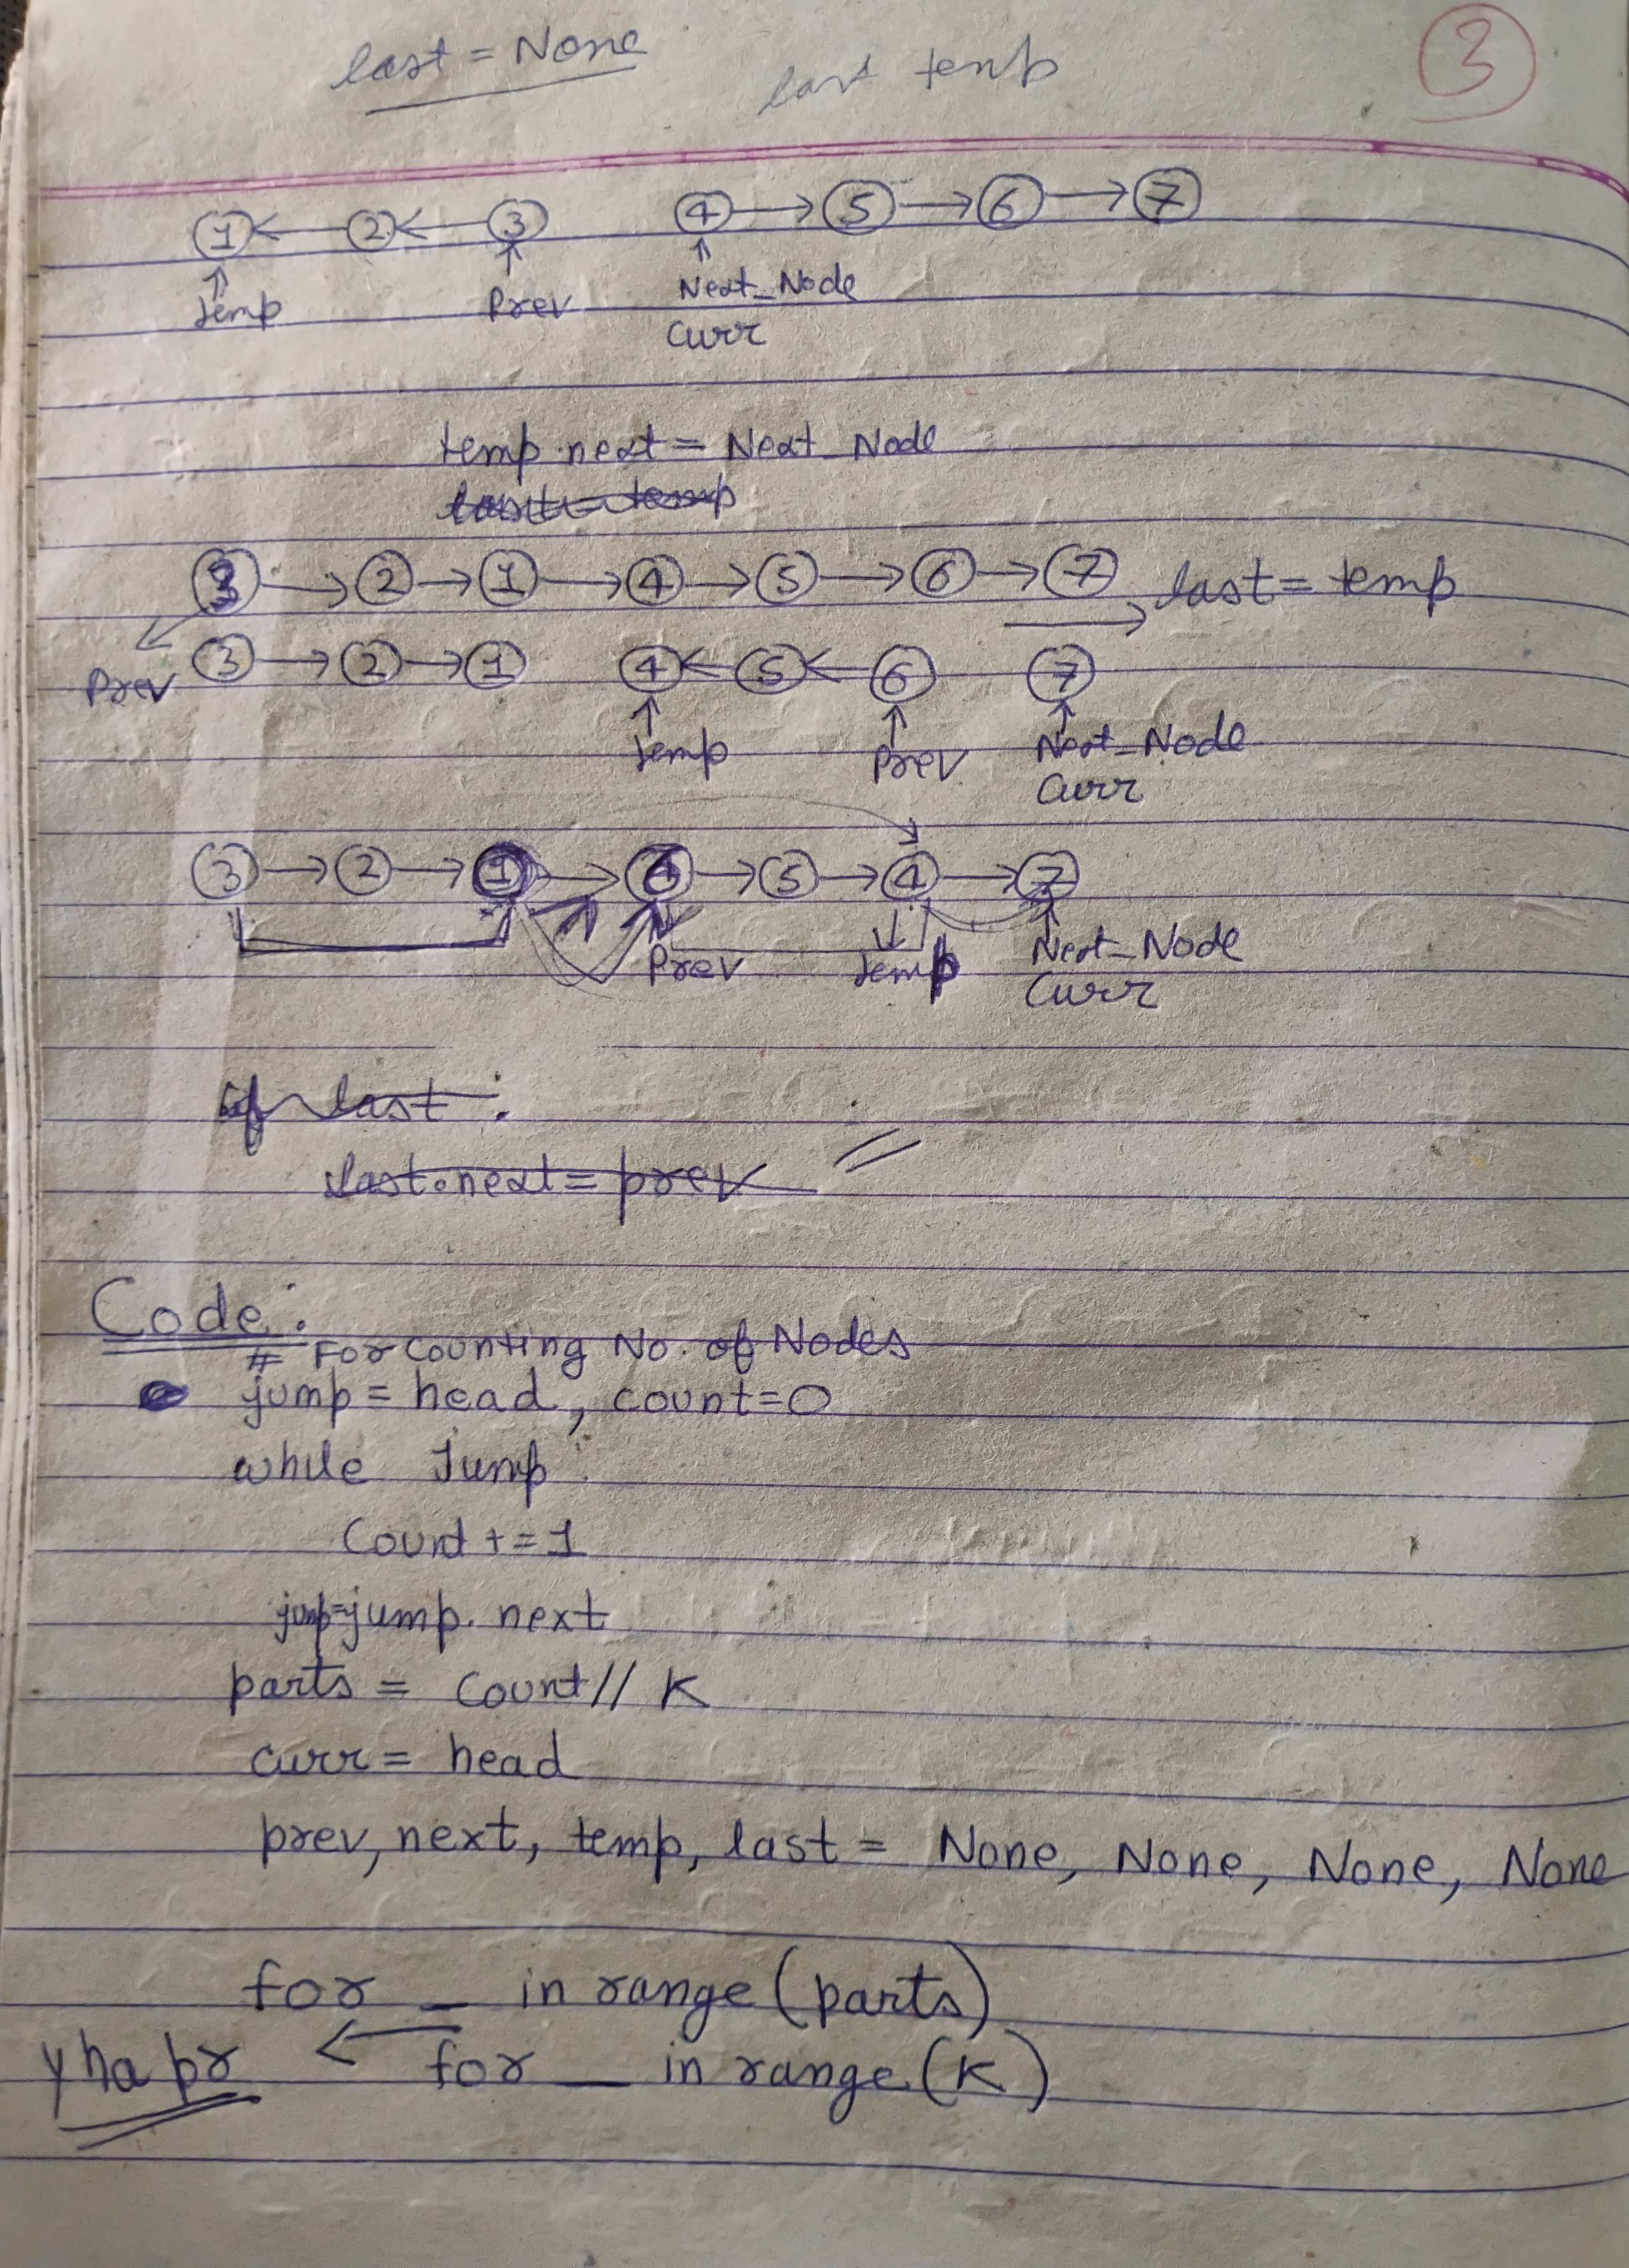 last = None
last temp
3
1 ← 2 ← 3 4 → 5 → 6 → 7
↑ ↑ ↑
Temp Prev Next_Node
Curr
temp.next = Next_Node
last = temp
3 → 2 → 1 → 4 → 5 → 6 → 7 last = temp
Prev 3 → 2 → 1 4 ← 5 ← 6 7
↑ ↑ ↑
Temp Prev Next_Node
Curr
3 → 2 → 1 → 6 → 5 → 4 → 7
Prev Temp Next_Node
Curr
if last :
last.next = prev
Code :
# For Counting No. of Nodes
jump = head, count=0
while Jump
Count += 1
jump=jump. next
parts = Count // K
curr = head
prev, next, temp, last = None, None, None, None
for _ in range (parts)
yha pr ← for _ in range (K)